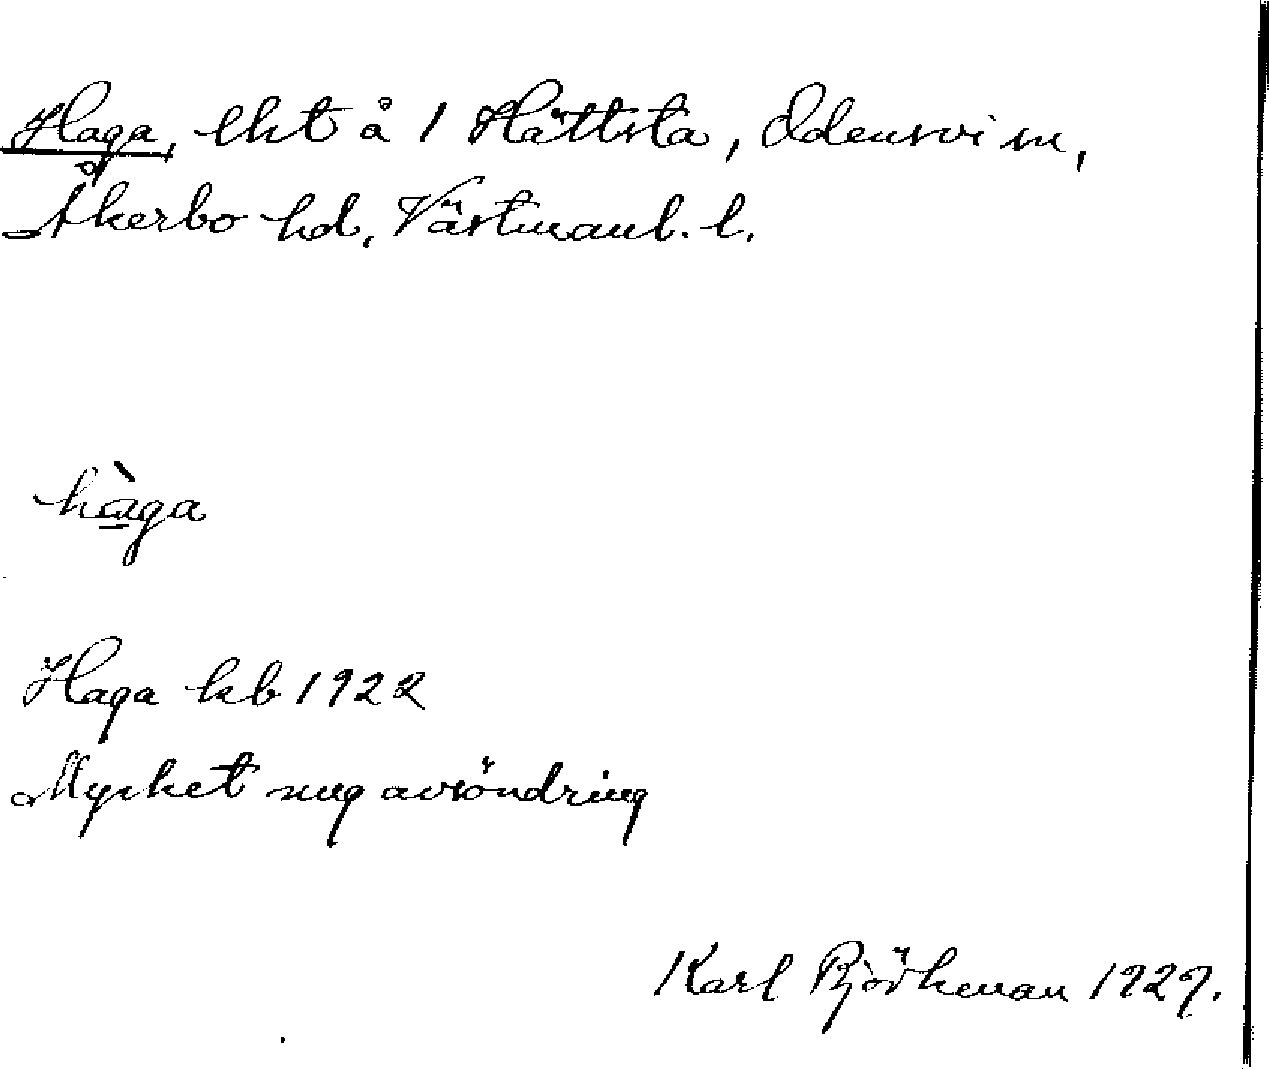 Haga, lht å 1 Hättsta, Odensvi sn,
Åkerbo hd, Västmanl. l.
hàga
Haga kb 1922
Mycket ung avsöndring
Karl Björkman 1929.